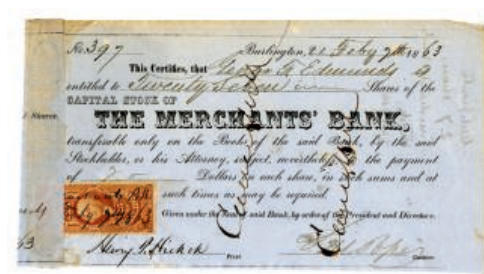 No 397 Burlington, Vt. Feby 7th 1863
This Certifies, that George F Edmunds is
entitled to Twenty Seven Shares of the
CAPITAL STOCK OF
THE MERCHANTS' BANK,
transferable only on the Books of the said Bank, by the said
Stockholder, or his Attorney, subject, nevertheless, to the payment
of Dollars on each share, in such sums and at
such times as may be required.
Given under the Seal of said Bank, by order of the President and Directors.
Henry P. Hickok
Prest Cashier
Shares
63
Cancelled
Cancelled